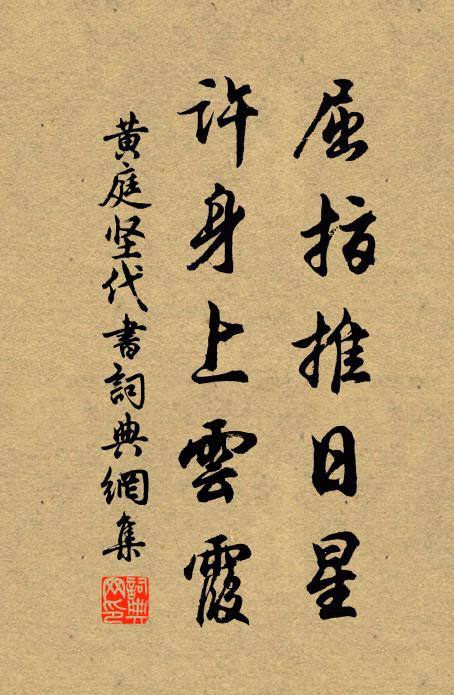 屈指推日星
許身上雲霞
黄庭坚代書詞典網集
詞典网印